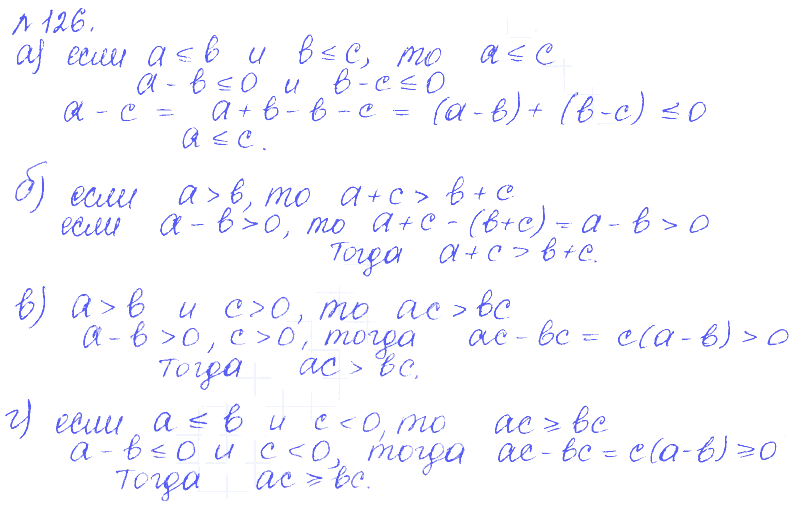 № 126.
а) если a ≤ b и b ≤ c, то a ≤ c
a - b ≤ 0 и b - c ≤ 0
a - c = a + b - b - c = (a - b) + (b - c) ≤ 0
a ≤ c.
б) если a > b, то a + c > b + c
если a - b > 0, то a + c - (b + c) = a - b > 0
Тогда a + c > b + c.
в) a > b и c > 0, то ac > bc
a - b > 0, c > 0, тогда ac - bc = c(a - b) > 0
Тогда ac > bc.
г) если a ≤ b и c < 0, то ac ≥ bc
a - b ≤ 0 и c < 0, тогда ac - bc = c(a - b) ≥ 0
Тогда ac ≥ bc.